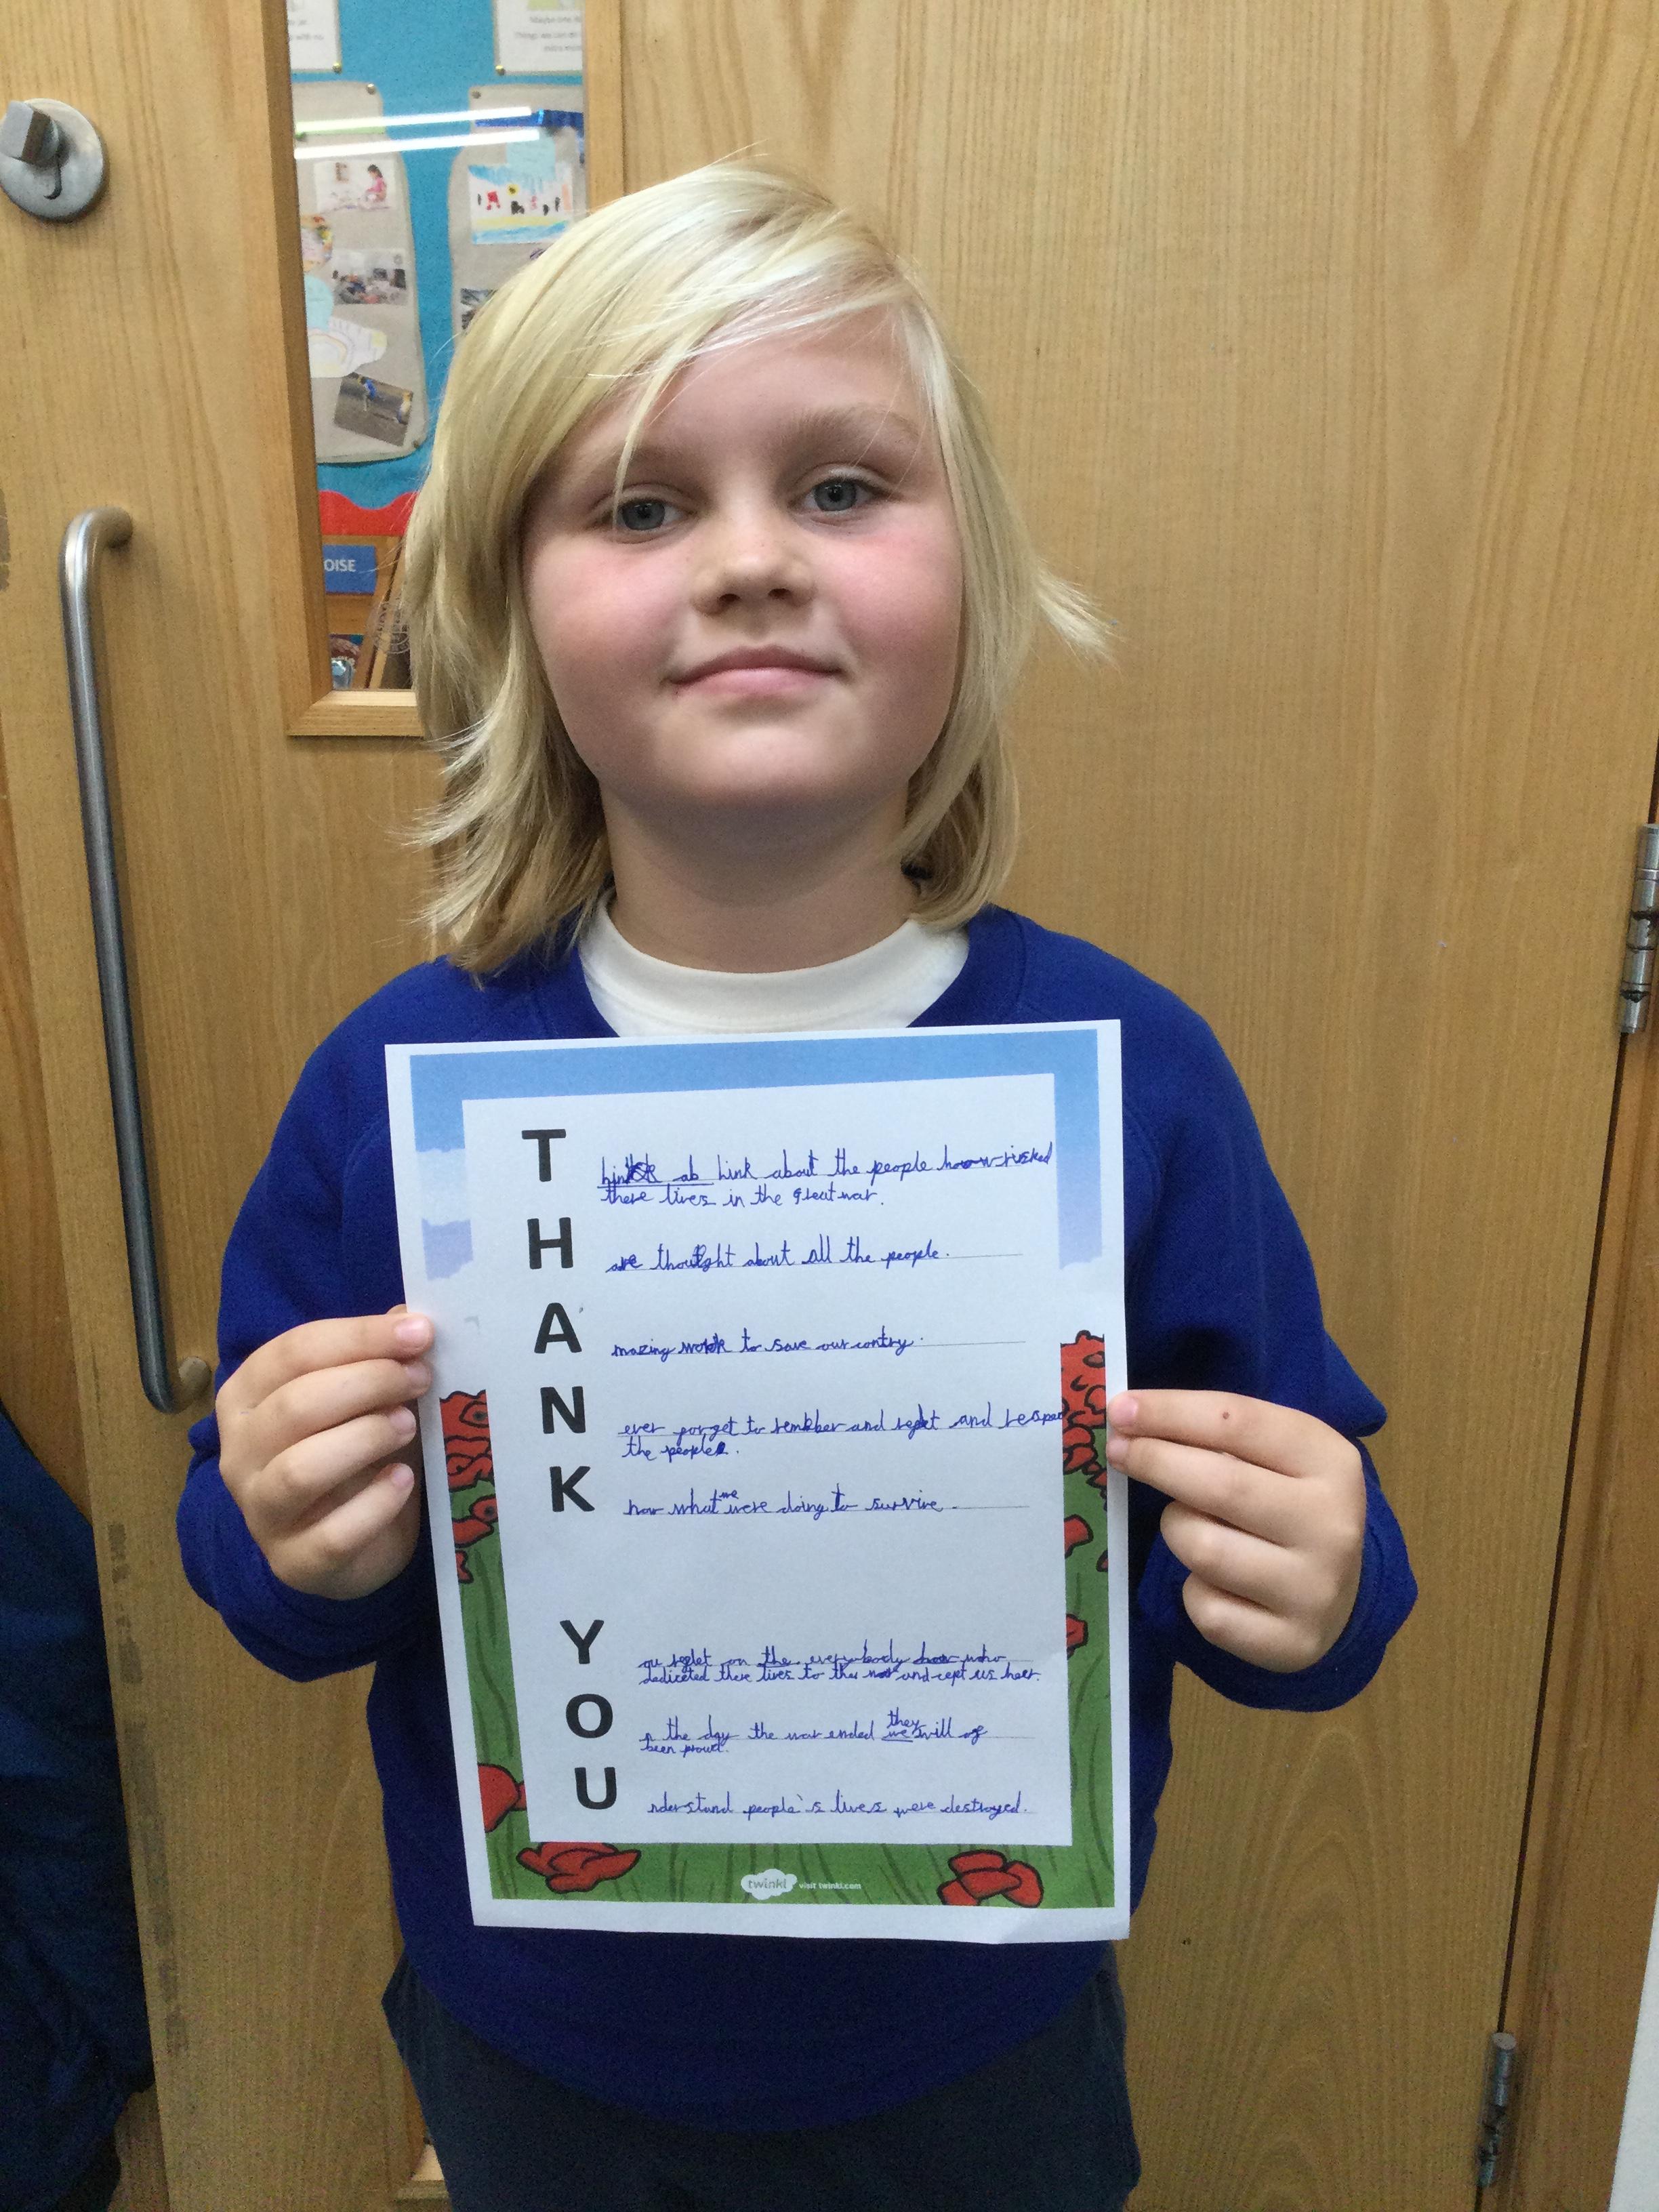 OISE
T hink about the people how risked
there lives in the great war.
H ave thought about all the people.
A mazing work to save our contry.
N ever forget to and and
the people.
K now what we were doing to survive.
Y ou on the everybody who
dedicated there lives to the and cept us
O n the day the war ended they will of
been proud.
U nderstand people's lives were destroyed.
twinkl visit twinkl.com